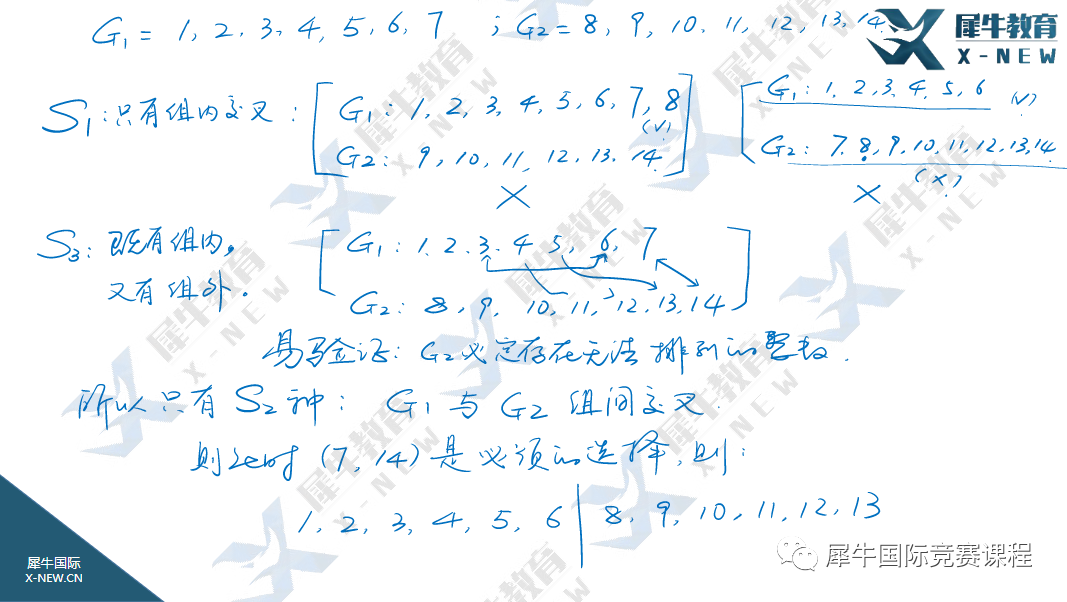 G₁ = 1, 2, 3, 4, 5, 6, 7 ; G₂ = 8, 9, 10, 11, 12, 13, 14
犀牛教育
X-NEW
S₁: 只有组内交叉: G₁: 1, 2, 3, 4, 5, 6, 7, 8 G₁: 1, 2, 3, 4, 5, 6 (√)
(√)
G₂: 9, 10, 11, 12, 13, 14 G₂: 7, 8, 9, 10, 11, 12, 13, 14
(×)
× ×
S₃: 既有组内, G₁: 1, 2, 3, 4, 5, 6, 7
又有组外. G₂: 8, 9, 10, 11, 12, 13, 14
易验证: G₂必定存在无法排列的整数.
所以只有S₂种: G₁与G₂组间交叉.
则此时 (7, 14) 是必须的选择, 则:
1, 2, 3, 4, 5, 6 | 8, 9, 10, 11, 12, 13
犀牛国际
X-NEW.CN
犀牛国际竞赛课程